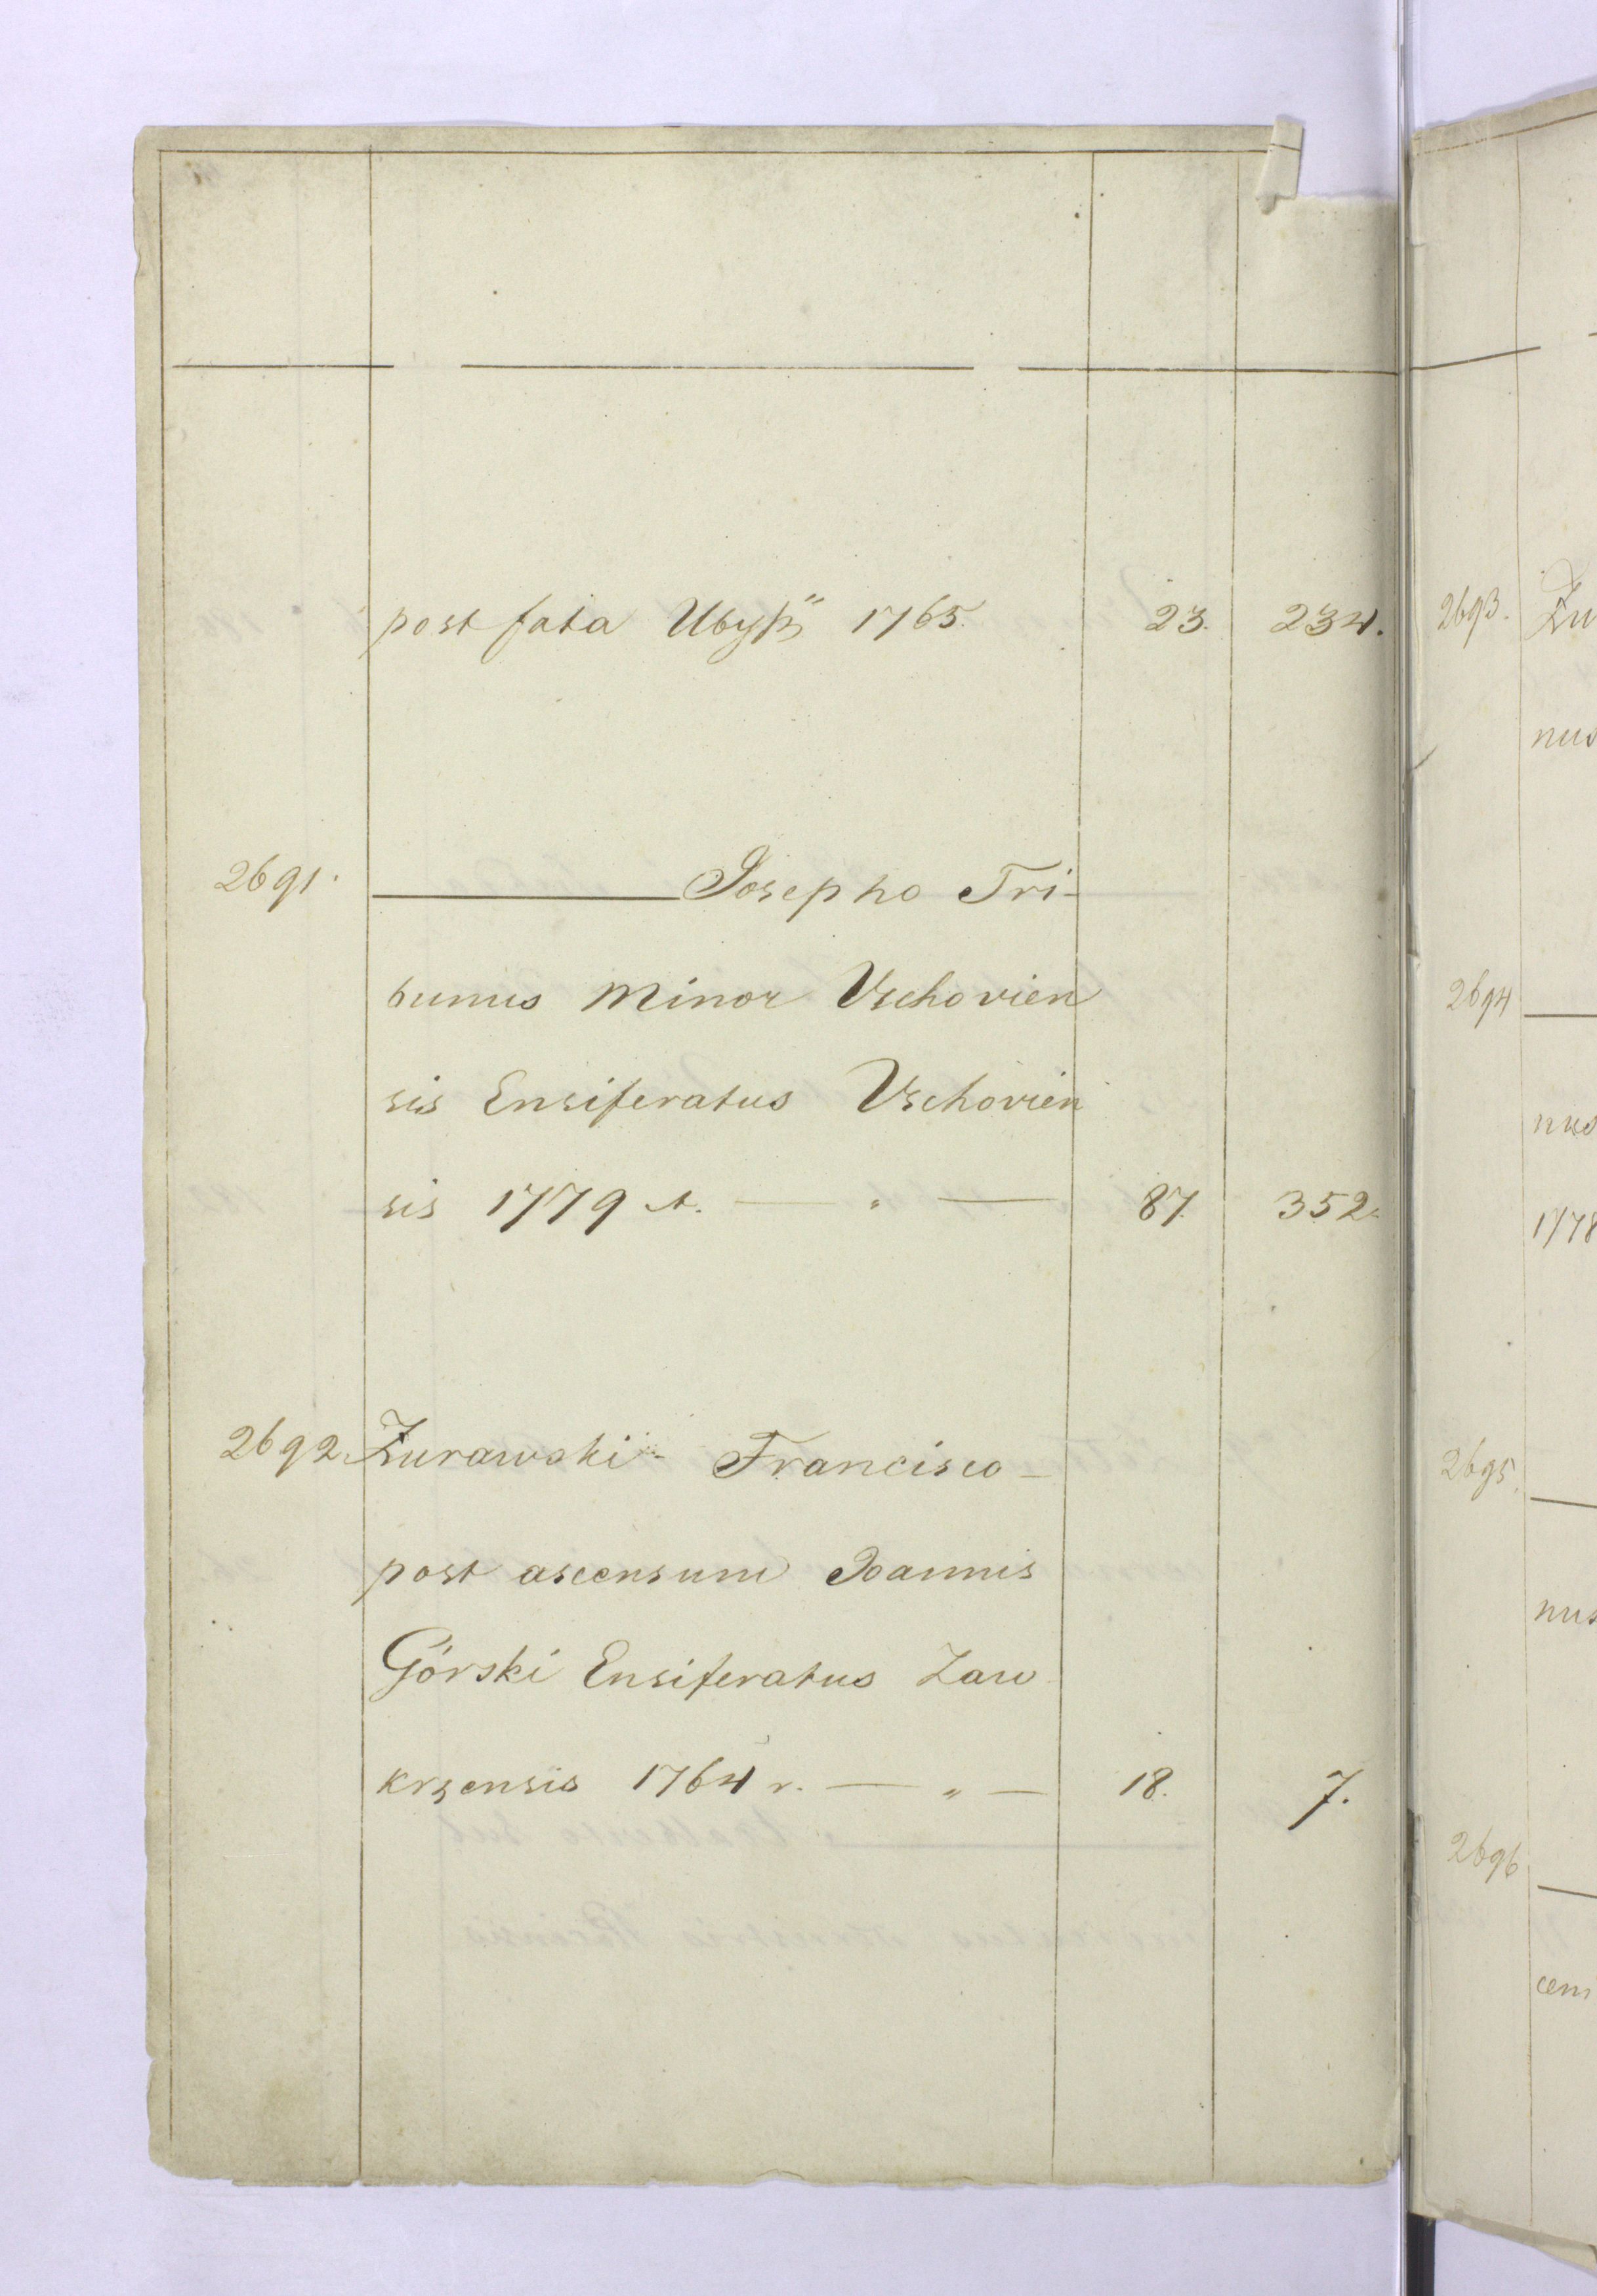 post fata Ubyß 1765. 23. 234.
2691. Josepho Tri-
bunus Minor Vschovien
sis Ensiferatus Vschovien
sis 1779 r. — „ — 87. 352.
2692. Żurawski Francisco -
post ascensum Joannis
Górski Ensiferatus Zaw
krzensis 1764 r. — „ — 18. 7.
2693. Żu
nus
2694
nus
1778
2695.
nus
2696
cem